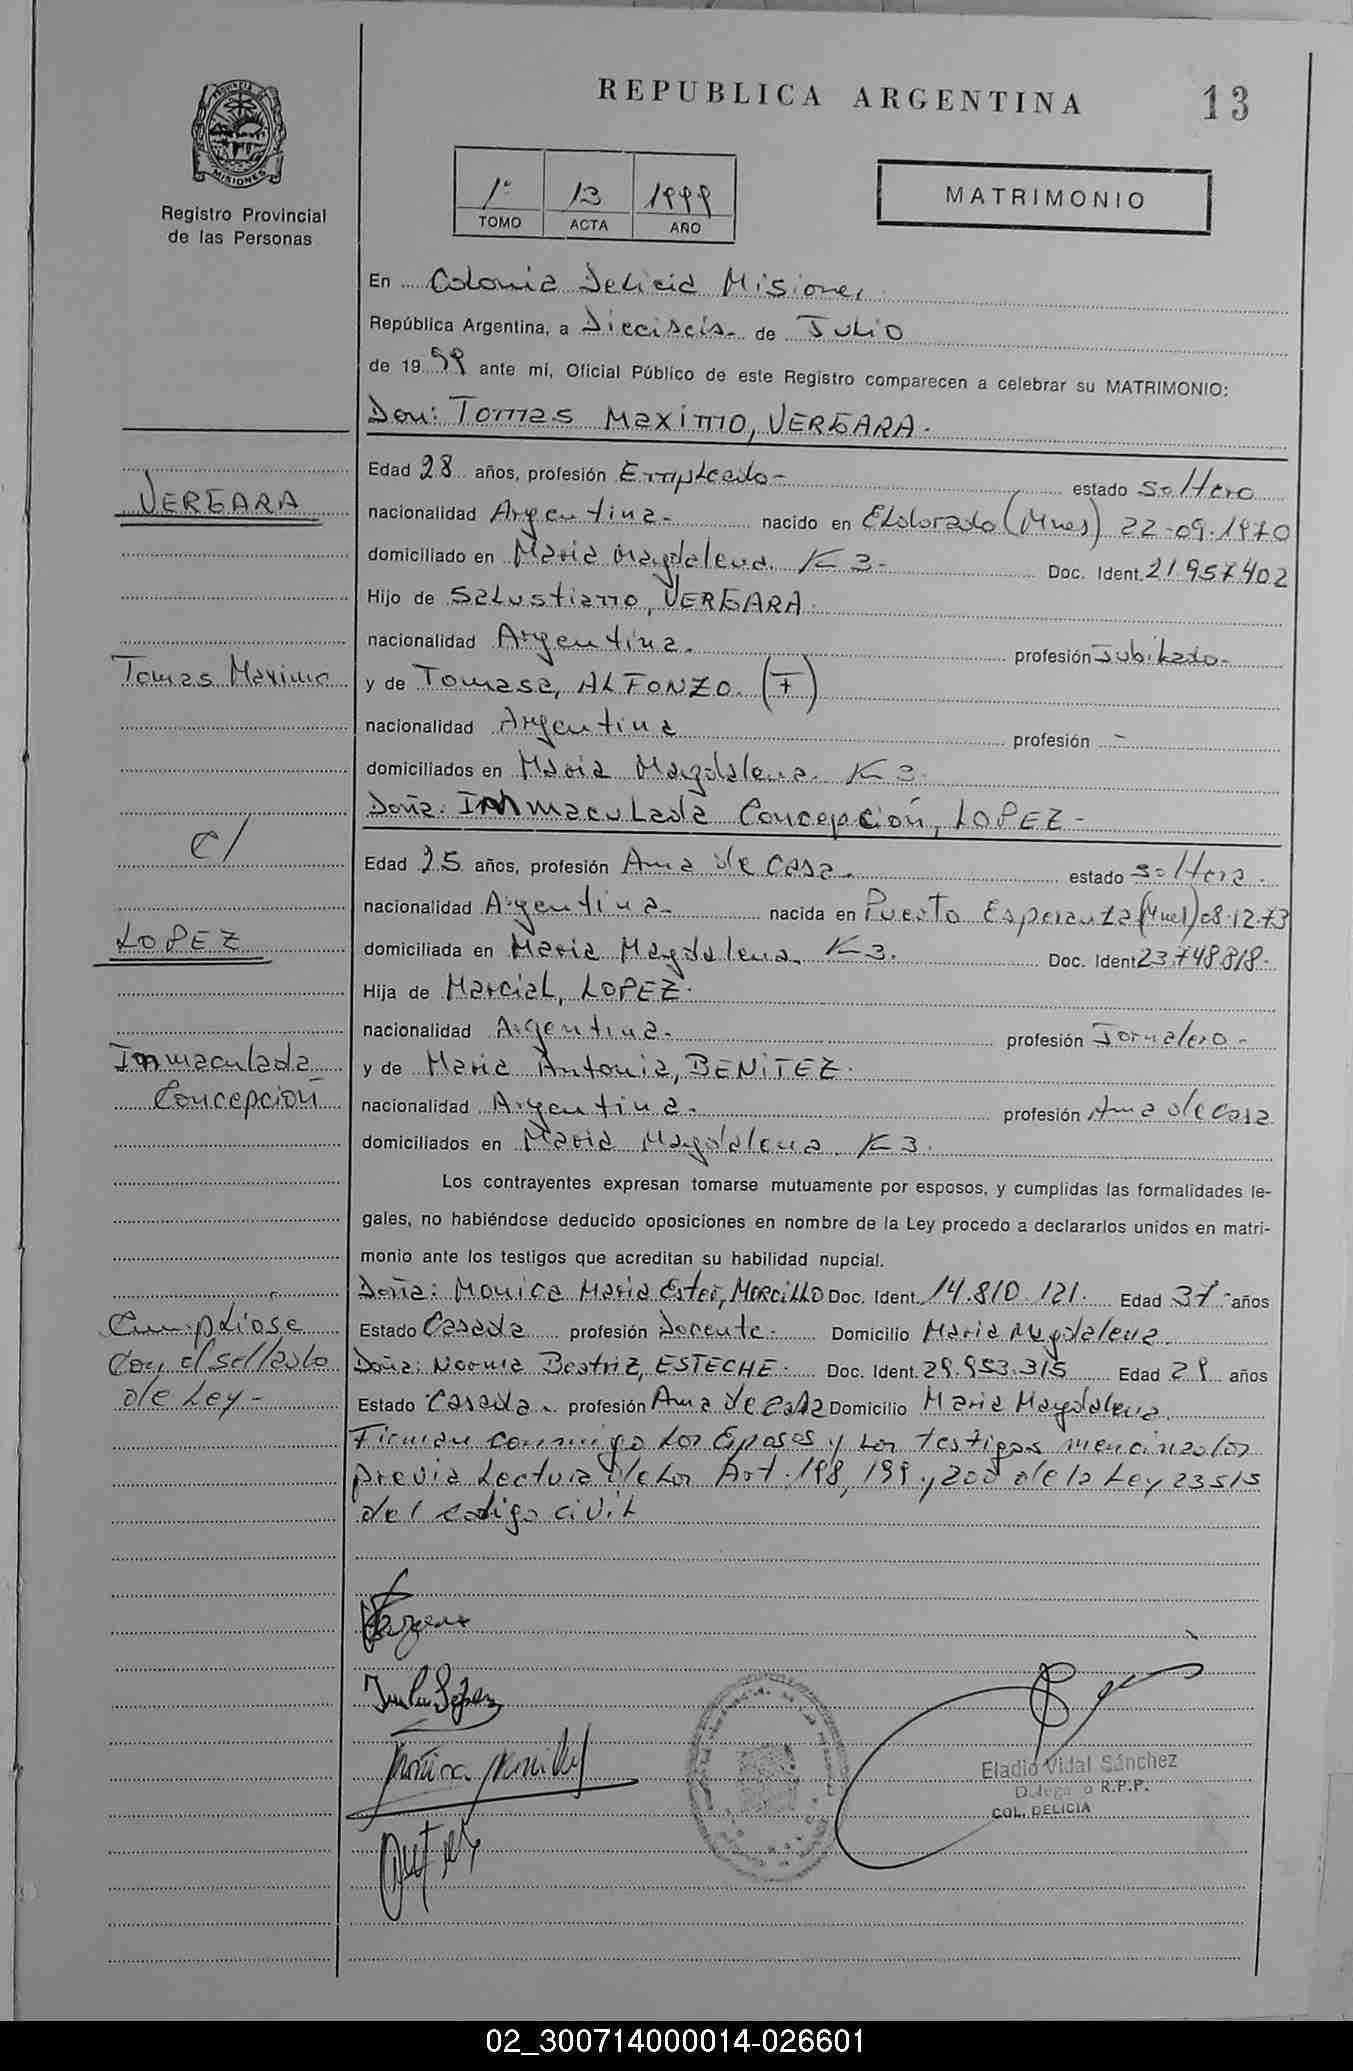 REPUBLICA ARGENTINA
13
PROVINCIA DE
MISIONES
Registro Provincial
de las Personas
1º 13 1999
TOMO ACTA AÑO
MATRIMONIO
En Colonia Delicia Misiones
República Argentina, a Dieciseis de Julio
de 1999 ante mí, Oficial Público de este Registro comparecen a celebrar su MATRIMONIO:
Don: Tomas Maximo, VERGARA.
Edad 28 años, profesión Empleado- estado soltero
VERGARA
nacionalidad Argentina- nacido en Eldorado (Mnes) 22-09-1970
domiciliado en Maria Magdalena K 3- Doc. Ident. 21.957.402
Hijo de Salustiano, VERGARA.
nacionalidad Argentina. profesión Jubilado-
Tomas Maximo
y de Tomasa, ALFONZO. (F)
nacionalidad Argentina profesión -
domiciliados en Maria Magdalena. K 3.
Doña: Inmaculada Concepción, LOPEZ-
c/
Edad 25 años, profesión Ama de Casa. estado soltera.
nacionalidad Argentina- nacida en Puerto Esperanza (Mnes) 08-12-73
LOPEZ
domiciliada en Maria Magdalena. K 3. Doc. Ident 23.748.818.
Hija de Marcial, LOPEZ.
nacionalidad Argentina- profesión Jornalero-
Inmaculada
Concepción
y de Maria Antonia, BENITEZ.
nacionalidad Argentina. profesión Ama de Casa
domiciliados en Maria Magdalena K 3.
Los contrayentes expresan tomarse mutuamente por esposos, y cumplidas las formalidades le-
gales, no habiéndose deducido oposiciones en nombre de la Ley procedo a declararlos unidos en matri-
monio ante los testigos que acreditan su habilidad nupcial.
Doña: Monica Maria Ester, MORCILLO Doc. Ident. 14.810.121. Edad 37 años
Cumpliose
con el sellado
de Ley-
Estado Casada profesión Docente- Domicilio Maria Magdalena
Doña: Norma Beatriz, ESTECHE. Doc. Ident. 29.953.315 Edad 29 años
Estado Casada profesión Ama de Casa Domicilio Maria Magdalena
Firman conmigo los Esposos y los testigos mencinados
previa Lectura de los Art. 198, 199 y 200 de la Ley 23515
del codigo civil
Eladio Vidal Sánchez
R.P.P.
COL. DELICIA
02_300714000014-026601